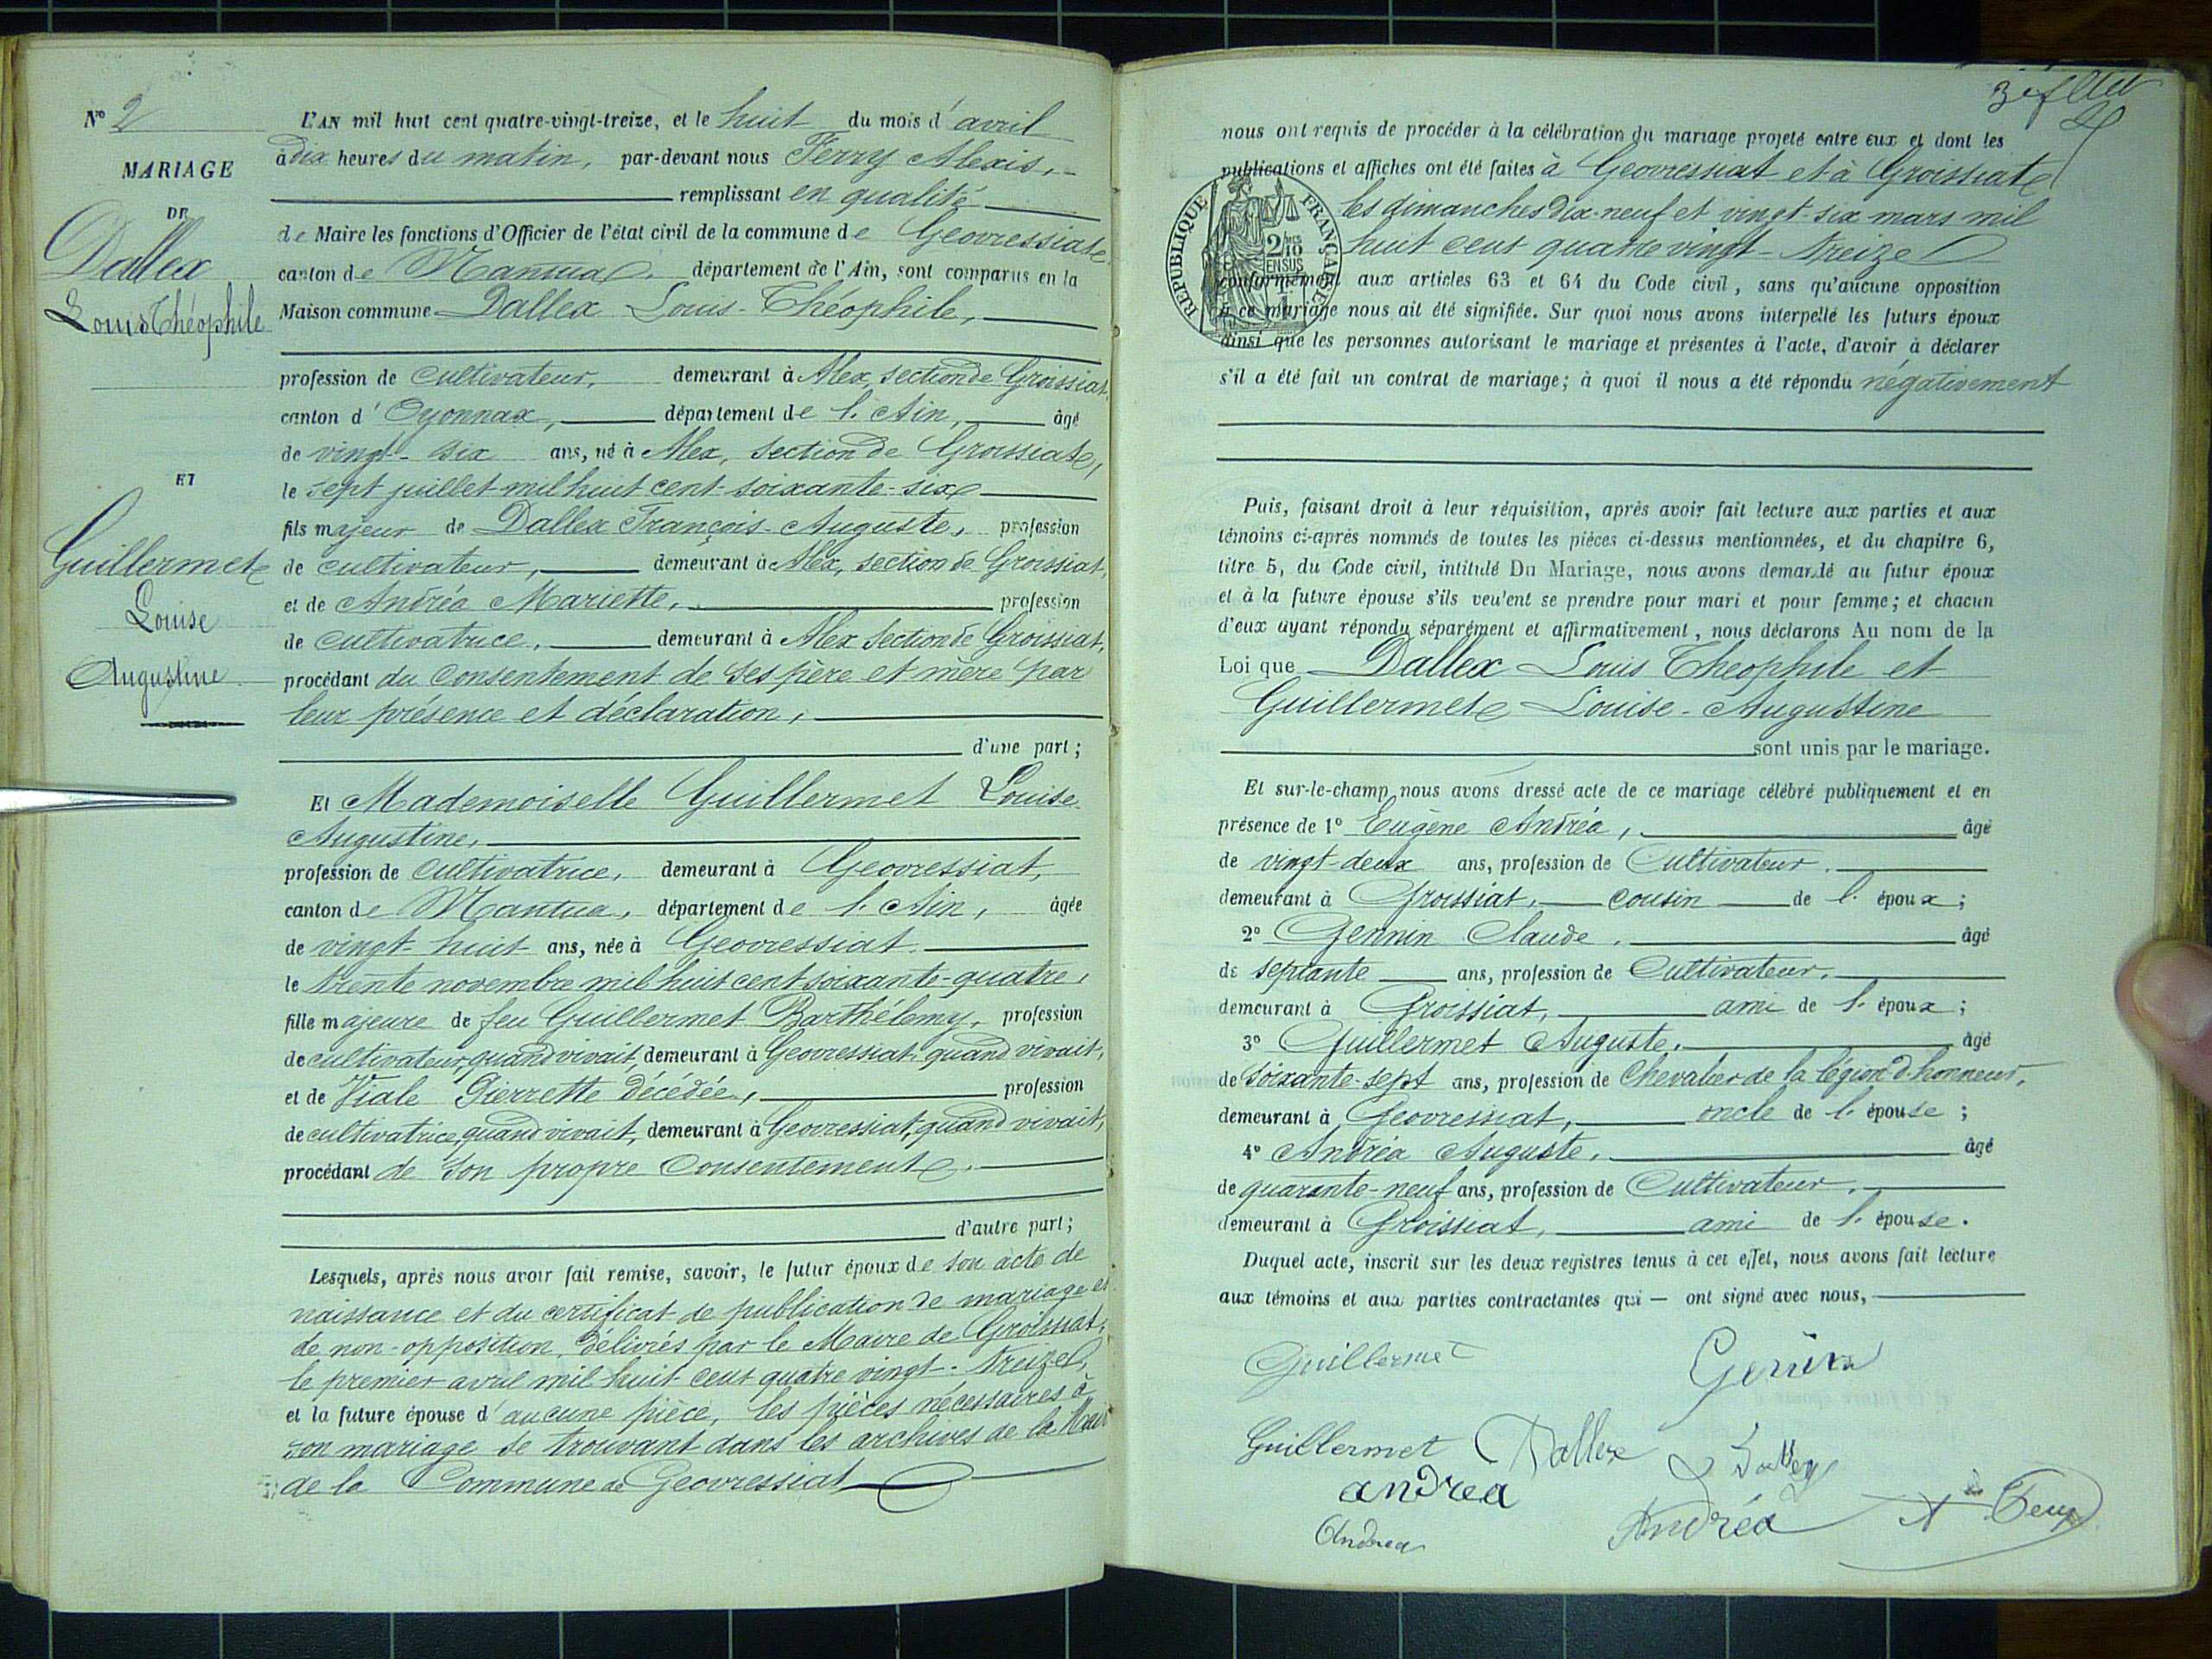 N° 2
MARIAGE
DE
Dallex
Louis Théophile
ET
Guillermet
Louise
Augustine
L'AN mil huit cent quatre-vingt-treize, et le huit du mois d'avril
à dix heures du matin, par-devant nous Ferry Alexis,
remplissant en qualité
de Maire les fonctions d'Officier de l'état civil de la commune de Geovressiat
canton de Nantua, département de l'Ain, sont comparus en la
Maison commune Dallex Louis-Théophile,
profession de cultivateur, demeurant à Alex, section de Groissiat,
canton d'Oyonnax, département de l'Ain, âgé
de vingt-six ans, né à Alex, section de Groissiat,
le sept juillet mil huit cent soixante-six
fils majeur de Dallex François-Auguste, profession
de cultivateur, demeurant à Alex, section de Groissiat,
et de Andréa Mariette, profession
de cultivatrice, demeurant à Alex section de Groissiat,
procédant du consentement de ses père et mère par
leur présence et déclaration,
d'une part;
Et Mademoiselle Guillermet Louise
Augustine,
profession de cultivatrice, demeurant à Geovressiat,
canton de Nantua, département de l'Ain, âgée
de vingt huit ans, née à Geovressiat
le trente novembre mil huit cent soixante-quatre,
fille majeure de feu Guillermet Barthélemy, profession
de cultivateur, quand vivait, demeurant à Geovressiat, quand vivait,
et de Viale Pierrette décédée, profession
de cultivatrice, quand vivait, demeurant à Geovressiat, quand vivait,
procédant de son propre consentement
d'autre part;
Lesquels, après nous avoir fait remise, savoir, le futur époux de son acte de
naissance et du certificat de publication de mariage et
de non-opposition, délivrés par le Maire de Groissiat,
le premier avril mil huit cent quatre vingt-treize,
et la future épouse d'aucune pièce, les pièces nécessaires à
son mariage se trouvant dans les archives de la Mairie
de la Commune de Geovressiat
nous ont requis de procéder à la célébration du mariage projeté entre eux et dont les
publications et affiches ont été faites à Geovressiat et à Groissiat
les dimanches dix-neuf et vingt-six mars mil
huit cent quatre vingt-treize
RÉPUBLIQUE FRANÇAISE
conformément aux articles 63 et 64 du Code civil, sans qu'aucune opposition
à ce mariage nous ait été signifiée. Sur quoi nous avons interpellé les futurs époux
ainsi que les personnes autorisant le mariage et présentes à l'acte, d'avoir à déclarer
s'il a été fait un contrat de mariage; à quoi il nous a été répondu négativement
Puis, faisant droit à leur réquisition, après avoir fait lecture aux parties et aux
témoins ci-après nommés de toutes les pièces ci-dessus mentionnées, et du chapitre 6,
titre 5, du Code civil, intitulé Du Mariage, nous avons demandé au futur époux
et à la future épouse s'ils veulent se prendre pour mari et pour femme; et chacun
d'eux ayant répondu séparément et affirmativement, nous déclarons Au nom de la
Loi que Dallex Louis Theophile et
Guillermet Louise-Augustine
sont unis par le mariage.
Et sur-le-champ nous avons dressé acte de ce mariage célébré publiquement et en
présence de 1° Eugène Andréa, âgé
de vingt-deux ans, profession de Cultivateur
demeurant à Groissiat, cousin de l'époux;
2° Gennin Claude, âgé
de septante ans, profession de Cultivateur,
demeurant à Groissiat, ami de l'époux;
3° Guillermet Auguste, âgé
de soixante-sept ans, profession de Chevalier de la légion d'honneur,
demeurant à Geovressiat, oncle de l'épouse;
4° Andréa Auguste, âgé
de quarante-neuf ans, profession de Cultivateur,
demeurant à Groissiat, ami de l'épouse.
Duquel acte, inscrit sur les deux registres tenus à cet effet, nous avons fait lecture
aux témoins et aux parties contractantes qui — ont signé avec nous,
Guillermet Genin
Guillermet Dallex
andrea
Andrea Andréa